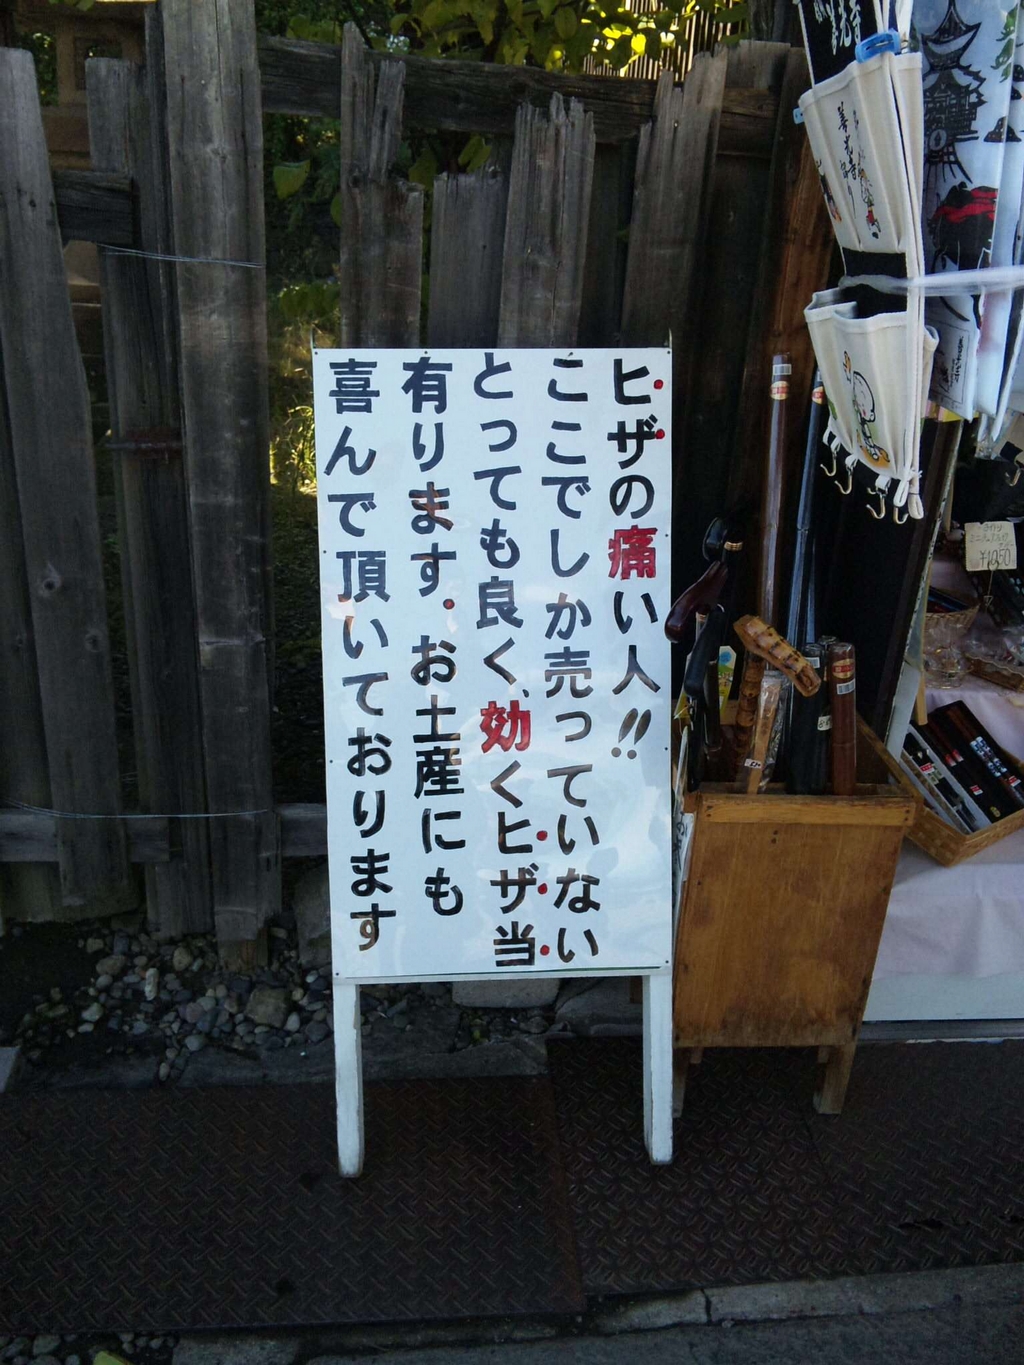 ヒザの痛い人!!
ここでしか売っていない
とっても良く、効くヒザ当
有ります。お土産にも
喜んで頂いております
¥1050